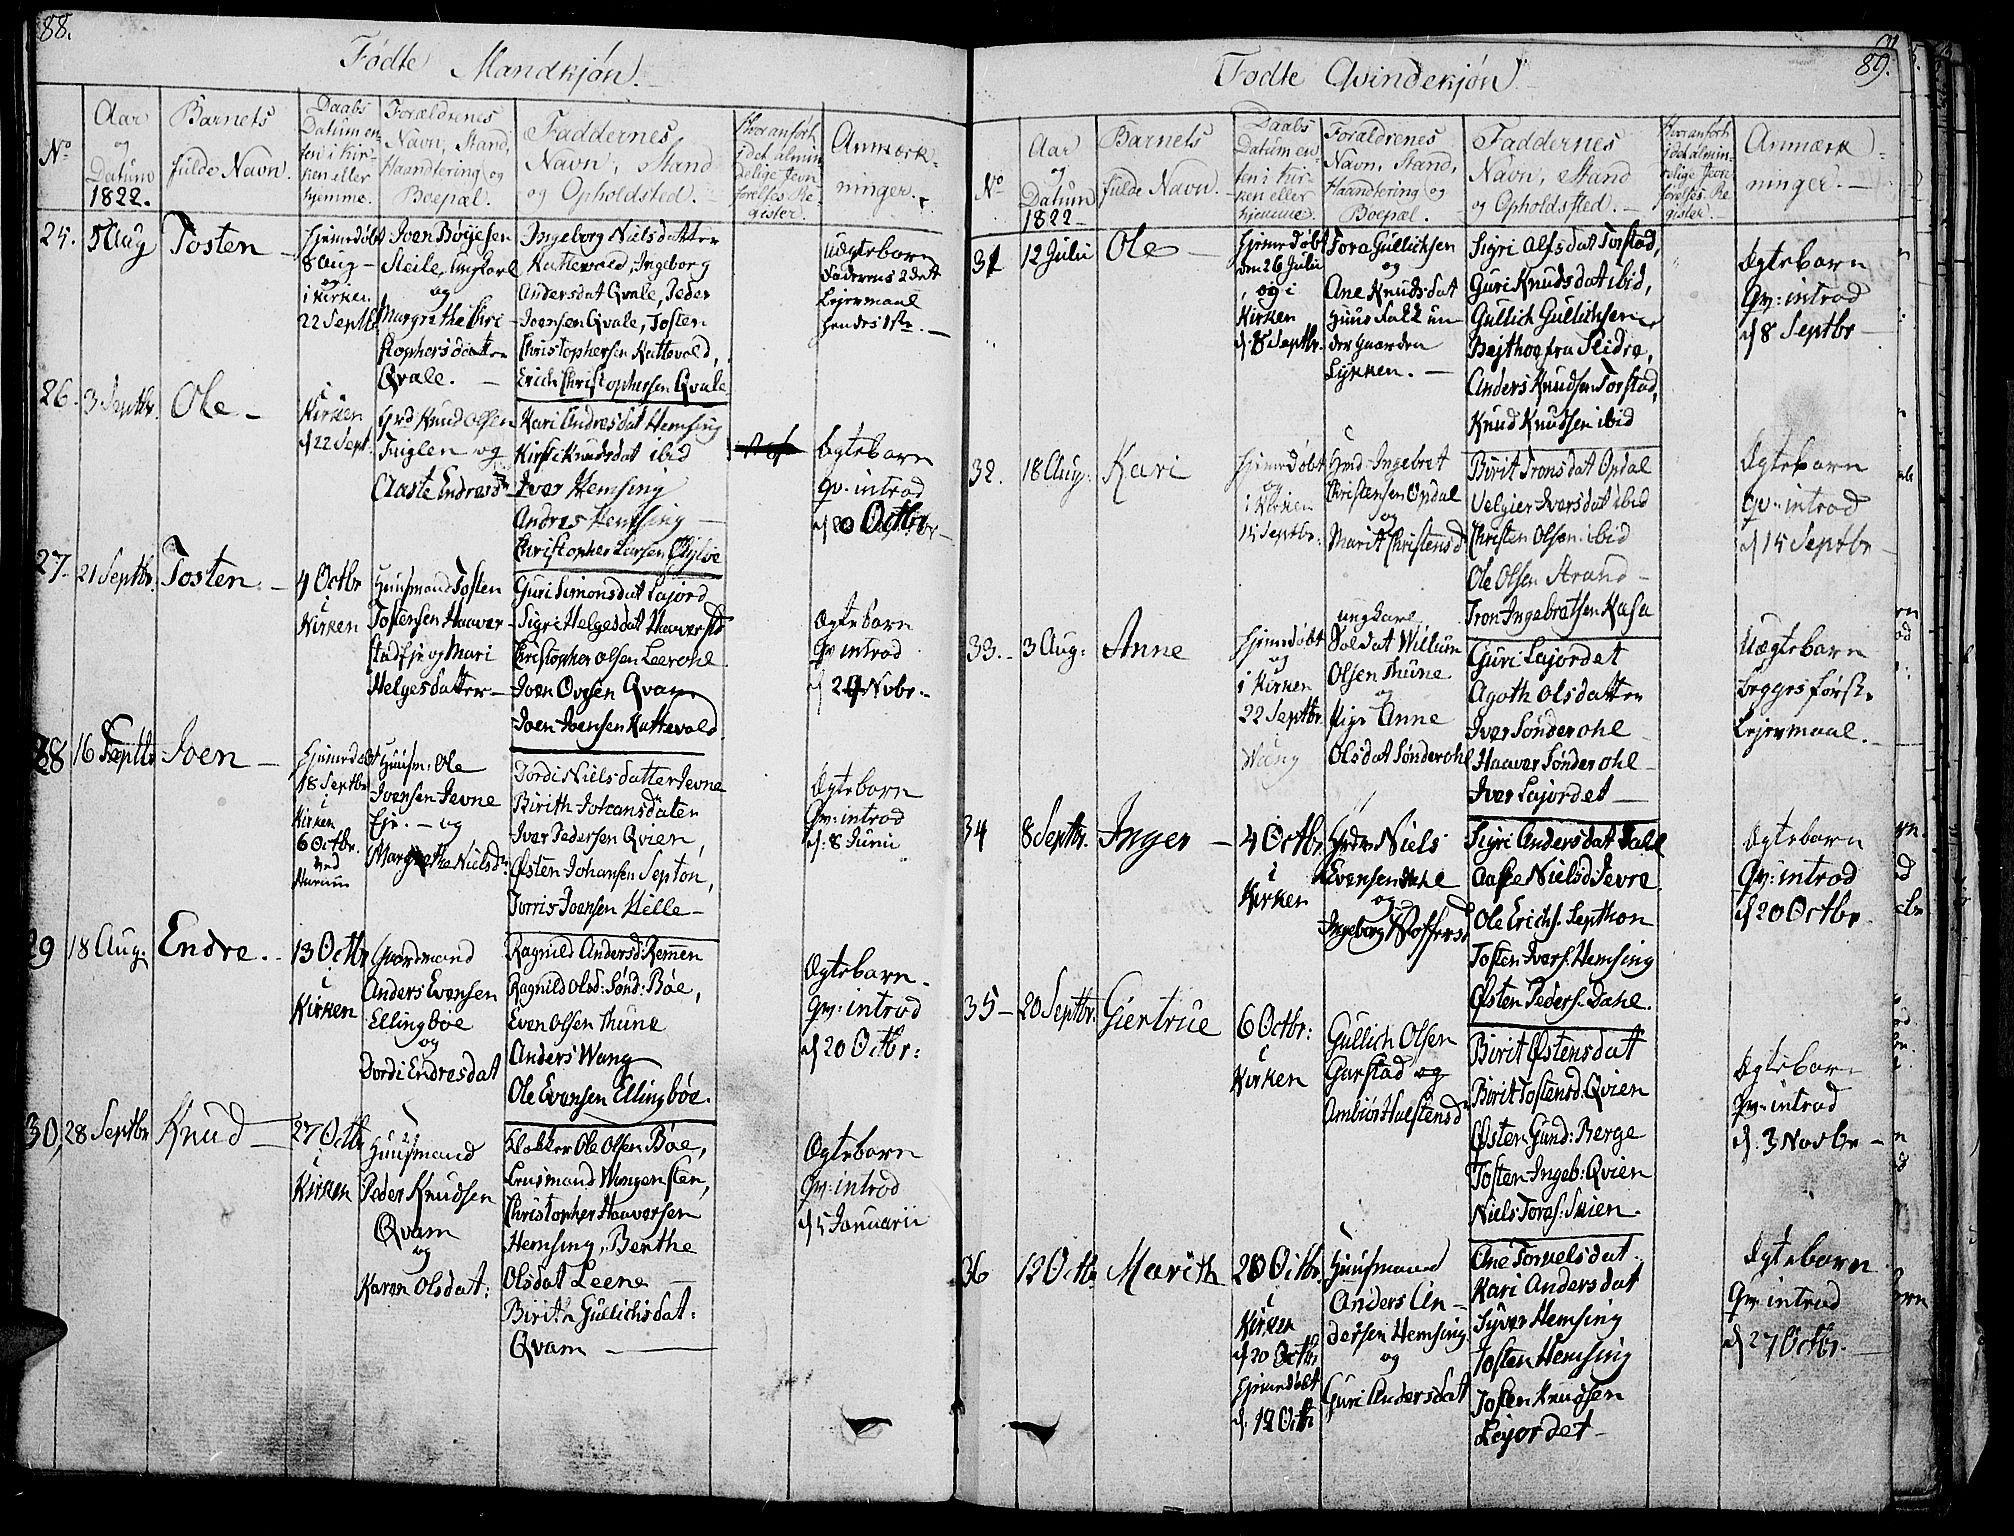 88.
Fødte Mandkjøn.
No
Aar
og
Datum
1822.
Barnets
fulde Navn.
Daabs
Datum en
ten i Kir-
ken eller
hjemme.
Forældrenes
Navn, Stand,
Haandtering og
Boepæl.
Faddernes
Navn, Stand
og Opholdsted.
Hvor anført
i det almin
delige Jevn
førelses Re
gister.
Anmærk-
ninger.
25. 5 Aug Tosten
hjemedøbt
8 Aug
og
i Kirken
22 Septb
Joen Børjesen
Steile, Ungkarl
og
Margrethe Chri
stophersdatter
Qvale.
Ingeborg Nielsdatter
Hattevold, Ingeborg
Andersdat Qvale, Peder
Joensen Qvale, Tosten
Christophersen Hattevold,
Erich Christophersen Qvale
Uægtebarn
Faderens 2det
Lejermaal
hendes 1ste.
26. 3 Septbr. Ole
Kirken
d 22 Sept.
Grd Knud Olsen
Fuglen og
Aaste Endresd
Kari Andresdat Hemsing
Kirsti Knudsdat ibid
Iver Hemsing
Andres Hemsing
Christopher Larsen
Ægtebarn
Qv: introd
Octbr
27. 21 Septbr. Tosten.
4 Octbr
i
Kirken
Huusmand Tosten
Tostensen Haaver
stad og Mari
Helgesdatter
Guri Simonsdat Lajord
Sigri Helgesdat Haaverstd
Christopher Olsen Leerohl
Joen Ovesen Qvam
Joen Joensen Hattevold
Ægtebarn
Qv introd
Novbr.
28 16 Septbr Joen
hjemedøbt
18 Septbr
i
Kirken
6 Octbr.
ved
Navnn
Huusm: Ole
Joensen Jevne
Eje. og
Margrethe Nielsd:
Jordi Nielsdatter Jevne
Birith Johansdaten
Iver Pedersen Qvien,
Østen Johansen Septon,
Torris Joensen Hille
Ægtebarn
Qv: introd
d: 8 Junii
29 18 Aug: Endre.
13 Octbr
i
Kirken
Gaardmand
Anders Evensen
Ellingbøe
og
Dordi Endresdat
Ragnild Andersd: Remen
Ragnild Olsd: Sønd: Bøe,
Even Olsen Thune
Anders Wang
Ole Evensen Ellingbøe.
Ægtebarn.
Qv: introd
d 20 Octbr:
30, 28 Septbr Knud
27 Octb
i
Kirken
Huusmand
Peder Knudsen
Qvam
og
Karen Olsdat:
Klokker Ole Olsen Bøe,
Leusmand Wangensten,
Christopher Haaversen
Hemsing, Berthe
Olsdat Leene
Birith Gullichsdat:
Qvam
Ægtebarn
Qv: introd
d 5 Januarii
89.
Fødte Qvindekjøn
No
Aar
og
Datum
1822
Barnets
fulde Navn.
Daabs
Datum en-
ten i Kir-
ken eller
hjemme.
Forældrenes
Navn, Stand,
Haandtering og
Boepæl.
Faddernes
Navn, Stand
og Opholdsted.
Hvor anført
i det almin-
delige Jevn
førelses Re
gister.
Anmærk-
ninger.
31 12 Julii Ole
hjemedøbt
den 26 Julii
og i
Kirken
d: 8 Septbr.
Tora Gullichsen
og
Ane Knudsdat
Huusfolk un
der Gaarden
Lykken.
Sigri Alfsdat Torstad,
Guri Knudsdat ibid,
Gullich Gullichsen
Bejthog fra Slidre,
Anders Knudsen Torstad,
Knud Knudsen ibid
Ægtebarn
Qv: introd
d 8 Septbr
32. 18 Aug: Kari
hjemedøbt
og
i Kirken
15 Septbr.
Hmd Ingebret
Christensen Opdal
og
Marit Christensd
Birit Tronsdat Opdal
Velgier Iversdat ibid
Christen Olsen ibid
Ole Olsen Strand
Tron Ingebretsen Kasa
Ægtebarn
Qv: introd
d 15 Septbr
33. 3 Aug: Anne
hjemedøbt
og
i Kirken
22 Septbr.
i
Wang
ungkarl
Soldat Willum
Olsen Thune
og
Pige Anne
Olsdat Sønderohl
Guri Lajordet
Agoth Olsdatter
Iver Sønderohl
Haaver Sønderohl
Iver Lajordet
Uægtebarn
begges første
Lejermaal.
34 8 Septbr. Inger
4 Octbr.
i
Kirken
Grdm Niels
Evensen Dahl
og
Ingeborg
Sigri Andersdat Dahl
Aase Nielsd Jevne
Ole Erichs. Septhon
Tosten Ivers. Hemsing
Østen Peders. Dahl.
Ægtebarn
Qv: introd
d 20 Octbr.
35 20 Septbr. Giertrue
6 Octbr:
i
Kirken
Gullich Olsen
Garstad og
Ambiør Halstensd
Birit Østensdat
Birit Tostensd. Qvien
Østen Gund: Berge
Tosten Ingeb: Qvien
Niels Tores: Skien.
Ægtebarn
Qv: introd
d. 3 Novbr
36 12 Octbr Marith
20 Octbr.
i
Kirken
d 20 Octbr
hjemedøbt
d. 12 Octb
Huusmand
Anders An-
dersen Hemsing
og
Guri Andersdat
Ane Torkelsdat.
Kari Andersdat
Syver Hemsing
Tosten Hemsing
Tosten Knudsen
Lejordet
Ægtebarn
Qv: introd
d 27 Octbr.